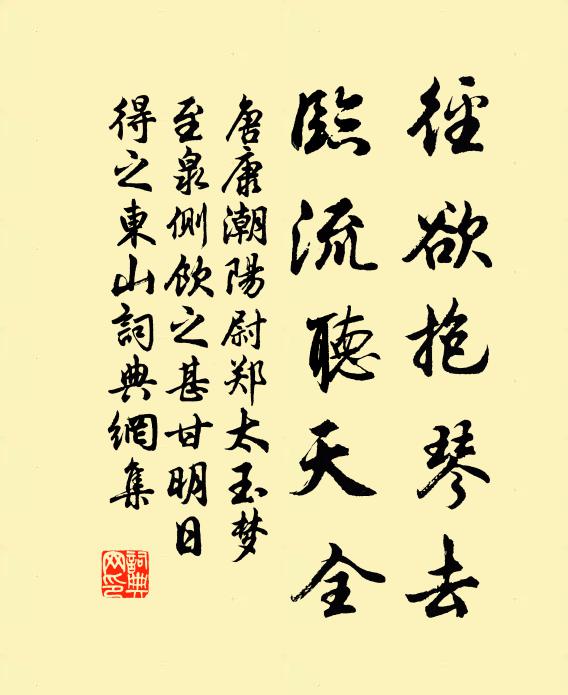 徑欲抱琴去
臨流聽天全
唐康潮陽尉郑太玉梦
至泉側飲之甚甘明日
得之東山詞典網集
詞典
网印